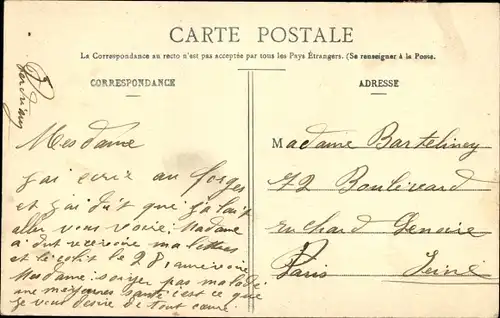 CARTE POSTALE
La Correspondance au recto n'est pas acceptée par tous les Pays Étrangers. (Se renseigner à la Poste.
CORRESPONDANCE
ADRESSE
Mesdame
j'ai ecrie au forges
et j'ai dit que j'alait
aller vous voire. Madame
a dut recevoire ma lettres
et le 28,
Mesdame: pas malade
une santé c'est ce que
je vout desire de tout cœur.
Madame Barteliney
72 Boulevard
Richard Lenoire
Paris Seine